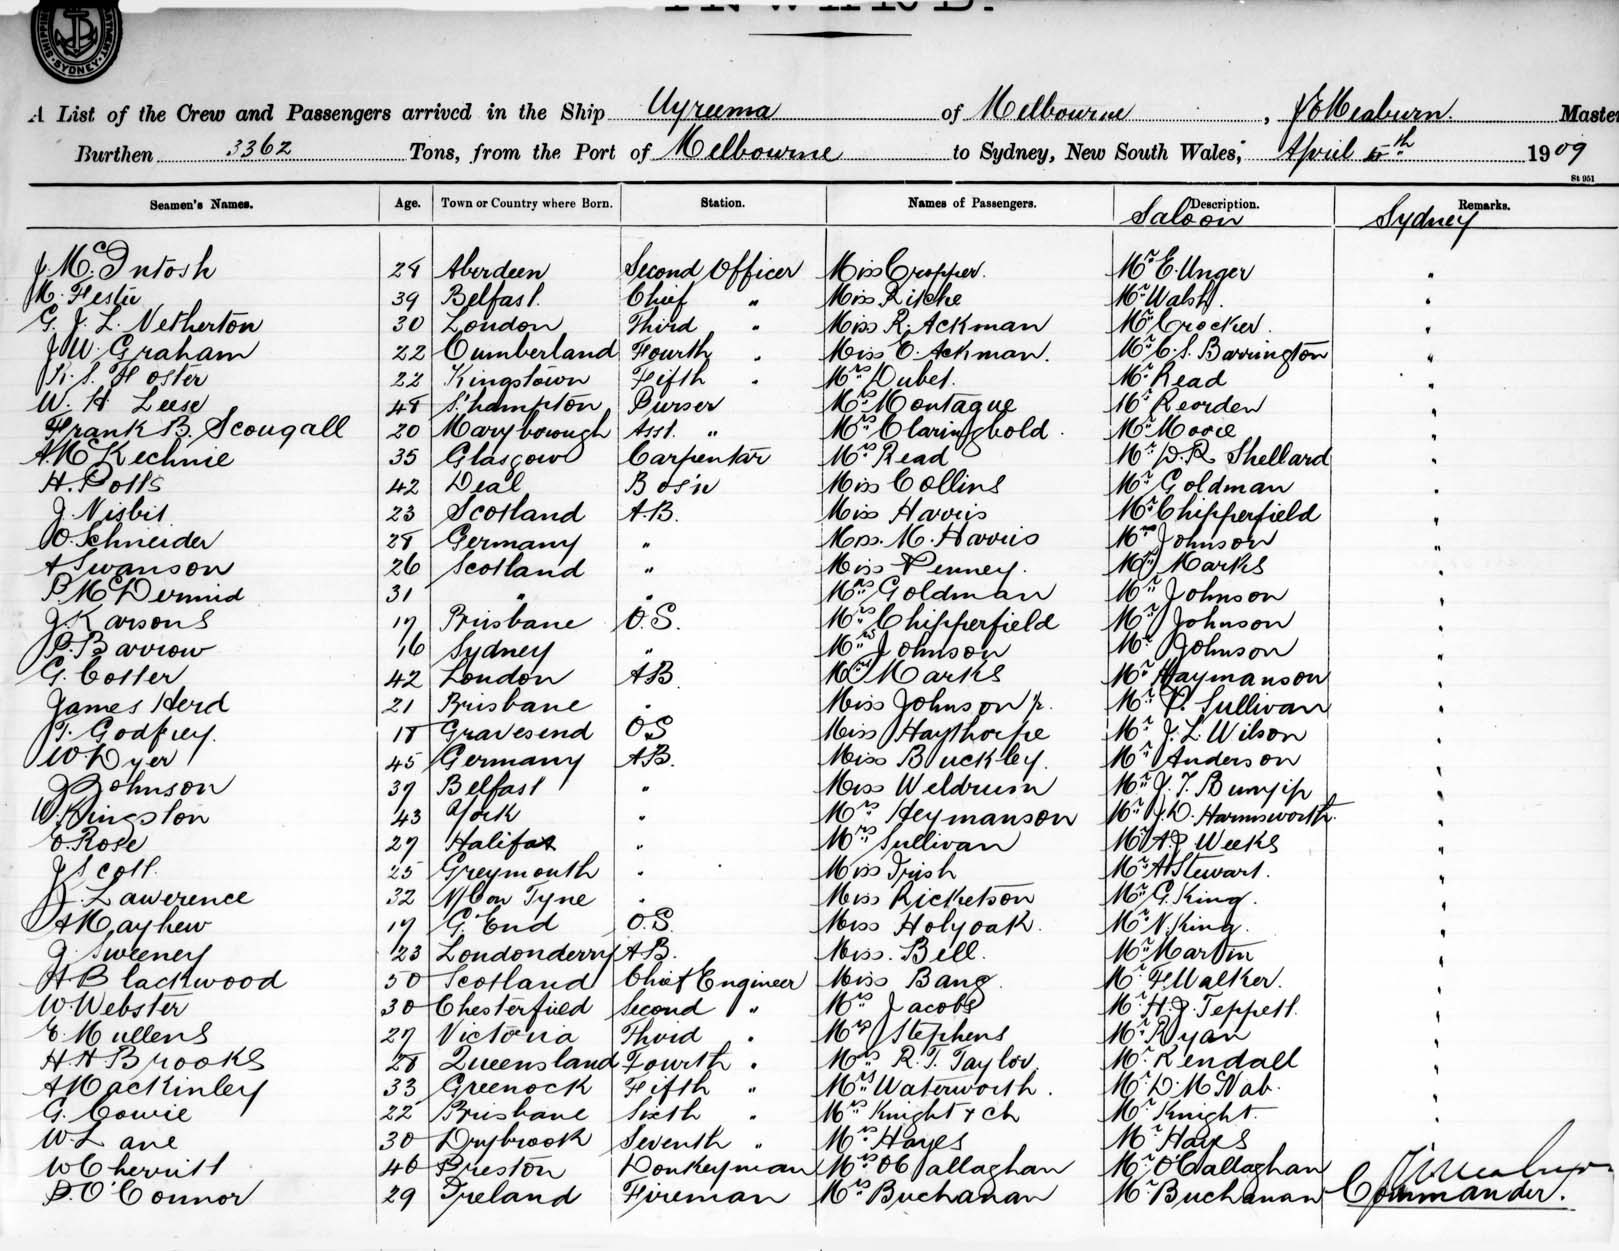 INWARD.
SYDNEY
A List of the Crew and Passengers arrived in the Ship Wyreema of Melbourne, Meaburn. Master
Burthen 3362 Tons, from the Port of Melbourne to Sydney, New South Wales, April 5th 1909
St 951
Seamen's Names. Age. Town or Country where Born. Station. Names of Passengers. Description. Remarks.
Saloon Sydney
J. McIntosh 28 Aberdeen Second Officer Miss Cropper. Mr E. Unger "
39 Belfast. Chief " Miss Ritche Mr Walsh. "
G. J. L. Netherton 30 London Third " Miss R. Ackman Mr Crocker. "
J. W. Graham 22 Cumberland Fourth " Miss E. Ackman. Mr C. S. Barrington "
R. S. Foster 22 Kingstown Fifth " Mrs Dubet. Mr Read "
W. H Leese 48 S'hampton Purser Mrs Montague Mr Reorden "
Frank B. Scougall 20 Maryborough Asst. " Mrs Claringbold. Mr Moore "
A. McKechnie 35 Glasgow Carpentar Mrs Read Mr D. R. Shellard "
H. Potts 42 Deal Bos'n Miss Collins Mr Goldman "
J. Nisbit 23 Scotland A.B. Miss Harris Mr Chipperfield "
O. Schneider 28 Germany " Miss. M. Harris Johnson "
A Swanson 26 Scotland " Miss Penney. Marks "
P. McDermid 31 " " Mrs Goldman Mr Johnson "
J. Karsons 17 Brisbane O.S. Mrs Chipperfield Mr Johnson "
P. Barrow 16 Sydney " Mrs Johnson Mr Johnson "
G. Cotter 42 London A.B. Mrs Marks Mr Haymanson "
James Herd 21 Brisbane " Miss Johnson jr. Mr P. Sullivan "
T. Godfrey. 18 Gravesend O.S Miss Haythorpe Mr J. L. Wilson "
W. Dyer 45 Germany A.B. Miss Buckley. Mr Anderson "
J Johnson 37 Belfast " Miss Weldrum Mr J. T. Bunyip "
W. Kingston 43 York " Mrs Heymanson Mr J. D. Harmsworth. "
E. Rose 27 Halifax " Mrs Sullivan Mr A J Weeks "
J Scott. 25 Greymouth " Miss Irish Mr A Stewart. "
J. Lawerence 32 N/C on Tyne " Miss Ricketson Mr G. King. "
A Mayhew 17 G. End O.S. Miss Holyoak. Mr N. King. "
J. Sweeney 23 Londonderry A.B. Miss. Bell. Mr Martin "
H Blackwood 50 Scotland Chief Engineer Miss Bang. Mr F. Walker. "
W. Webster 30 Chesterfield Second " Mrs Jacobs Mr H. J. Teppett. "
E. Mullens 27 Victoria Third " Mrs Stephens Mr Ryan "
H. H Brooks 28 Queensland Fourth " Mrs R. T. Taylor. Mr Kendall "
A Mackinley 33 Greenock Fifth " Mrs Waterworth. Mr D. McNab. "
G. Cowie 22 Brisbane Sixth " Mrs Knight & ch Mr Knight. "
W. Lane 30 Drybrook Seventh " Mrs Hayes Mr Hayes
W Cherritt 40 Preston Donkeyman Mrs O'Callaghan Mr O'Callaghan
D. O'Connor 29 Ireland Fireman Mrs Buchanan Mr Buchanan Commander.